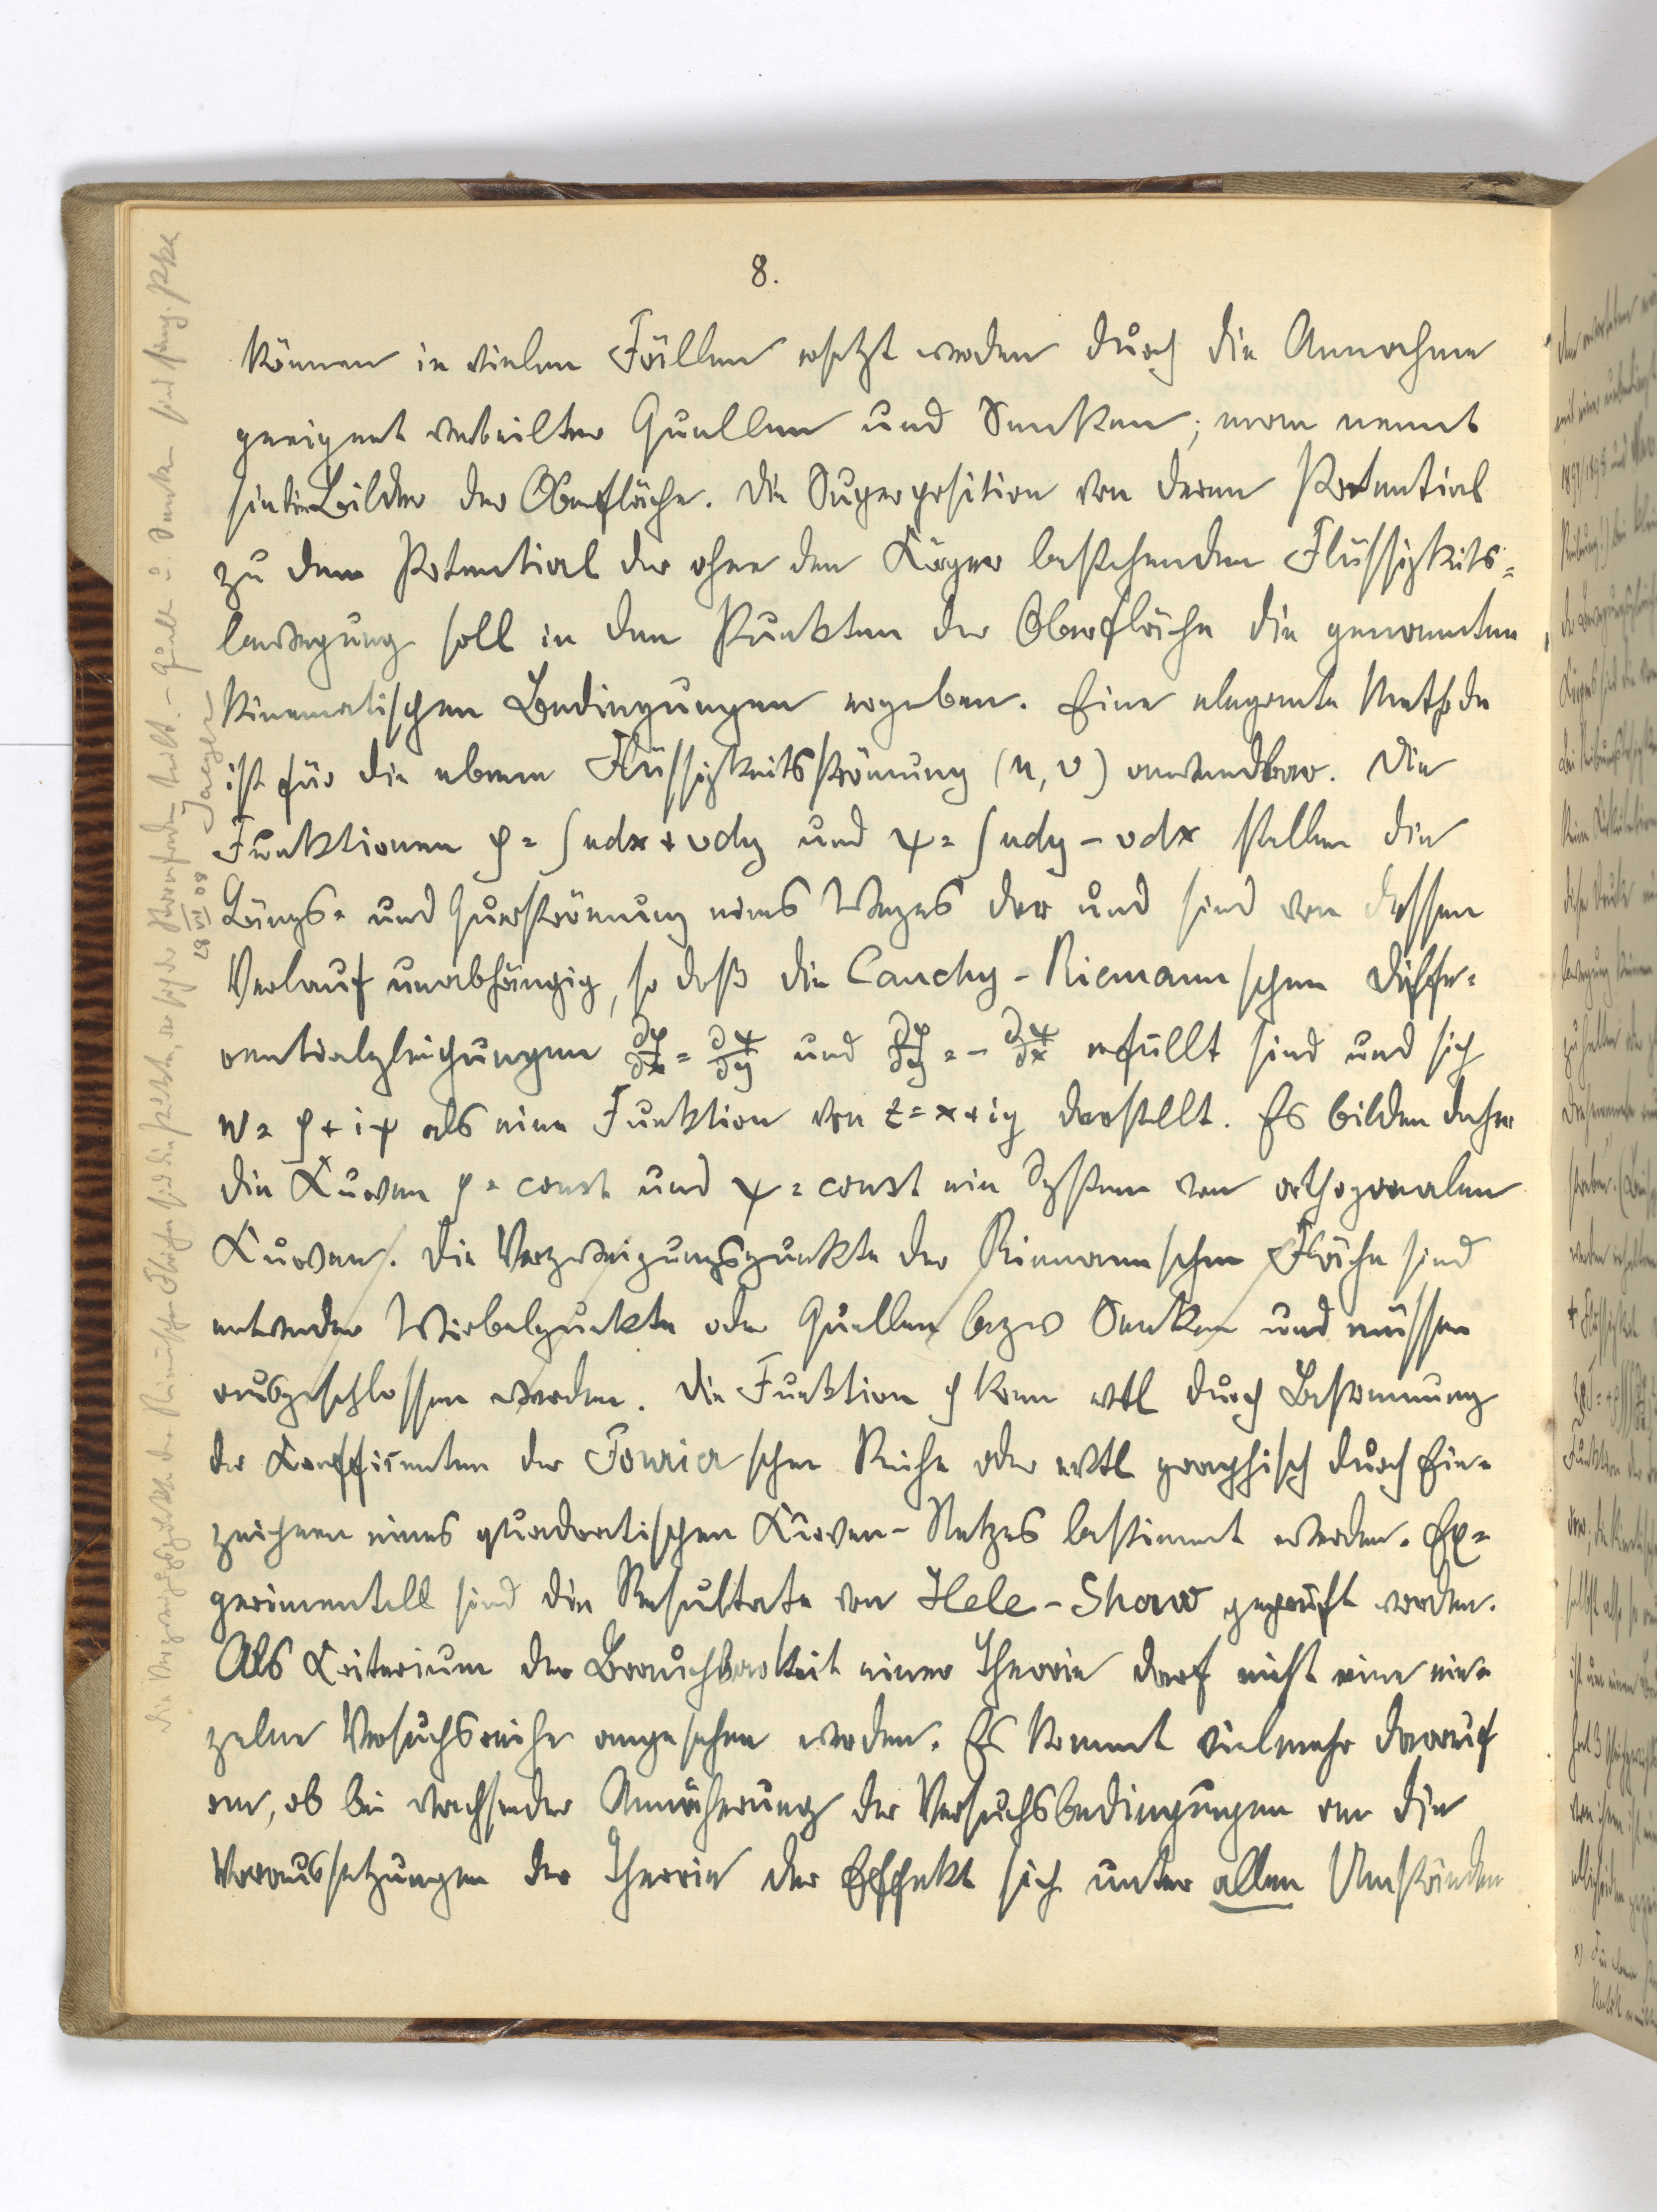 8.
können in vielen Fällen ersetzt werden durch die Annahme
geeignet verteilter Quellen und Senken; man nennt
sie die Bilder der Oberfläche. Die Superposition von deren Potential
zu dem Potential der ohne den Körper bestehenden Flüssigkeits=
bewegung soll in den Punkten der Oberfläche die genannten
kinematischen Bedingungen ergeben. Eine elegante Methode
ist für die ebene Flüssigkeitsströmung (u, v) anwendbar. Die
Funktionen φ = ∫udx + vdy und ψ = ∫udy - vdx stellen die
Längs- und Querströmung eines Weges dar und sind von dessen
Verlauf unabhängig, so daß die Cauchy-Riemannschen Diffe=
rentialgleichungen ∂φ/∂x = ∂ψ/∂y und ∂φ/∂y = - ∂ψ/∂x erfüllt sind und sich
w = φ + iψ als eine Funktion von z = x + iy darstellt. Es bilden daher
die Kurven φ = const und ψ = const ein System von orthogonalen
Kurven. Die Verzweigungspunkte der Riemannschen Fläche sind
entweder Wirbelpunkte oder Quellen bezw Senken und müssen
ausgeschlossen werden. Die Funktion φ kann evtl durch Bestimmung
der Koeffizienten der Fourierschen Reihe oder evtl graphisch durch Ein=
zeichnen eines quadratischen Kurven-Netzes bestimmt werden. Ex=
perimentell sind die Resultate von Hele-Shaw geprüft worden.
Als Kriterium der Brauchbarkeit einer Theorie darf nicht eine ein=
zelne Versuchsreihe angesehen werden. Es kommt vielmehr darauf
an, ob bei wachsender Annäherung der Versuchsbedingungen an die
Voraussetzungen der Theorie der Effekt sich unter allen Umständen
Die Verzweigungspunkte der Riemannschen Fläche sind die Punkte, wo sich der Stromfaden teilt. - Quellen u. Senken sind sing. Pkte
28 VII 08 Jaeger